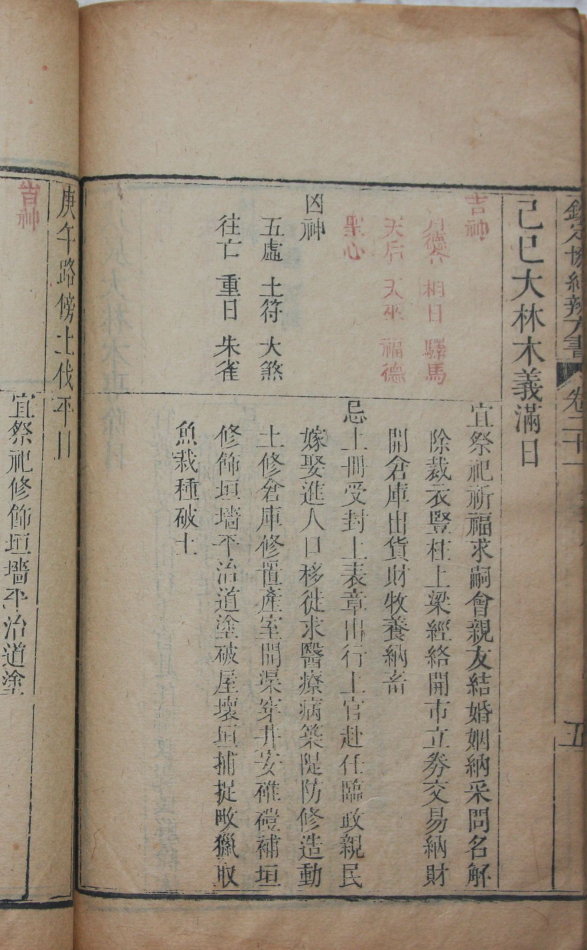 欽定協紀辨方書 卷二十一 五
己巳大林木義滿日
吉神
月德合 相日 驛馬
天后 天巫 福德
聖心
凶神
五虛 土符 大煞
往亡 重日 朱雀
宜祭祀祈福求嗣會親友結婚姻納采問名解
除裁衣豎柱上梁經絡開市立券交易納財
開倉庫出貨財牧養納畜
忌上冊受封上表章出行上官赴任臨政親民
嫁娶進人口移徙求醫療病築隄防修造動
土修倉庫修置產室開渠穿井安碓磑補垣
修飾垣墻平治道塗破屋壞垣捕捉畋獵取
魚栽種破土
庚午路傍土伐平日
吉神
宜祭祀修飾垣墻平治道塗